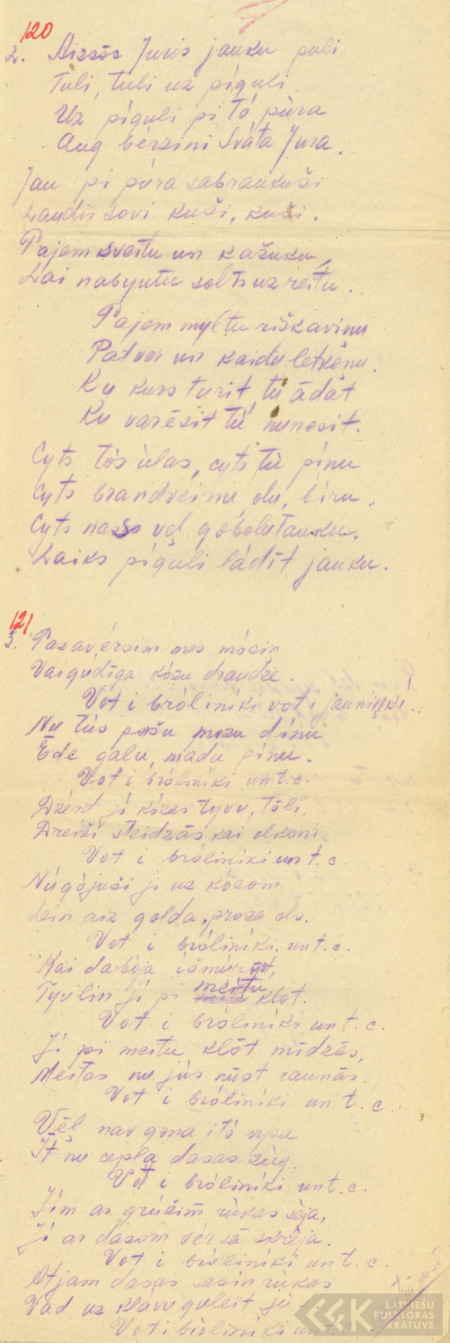 120
2. Aizsōc Juris jauku puli
Tuli, tuli uz pīguli.
Uz pīguli pi tō pūra
Aug bērzini Svāta Jura.
Jau pi pūra sabraukuši
Laudis sovi kuši, kuši.
Pajem sveitu un kažuku,
Lai nabyutu solts uz reitu.
Pajem myltu riškavinu
Patvor un kaidu letkēnu.
Ky kurs turit, tū ādat
Ku varēsit tū nunesit.
Cyts tōs ūlas, cyts tū pīnu
Cyts brandveinu olu, bīru.
Cyts nass vel gobolutauku.
Laiks pīguli lādīt jauku.
121
3. Pasavērsim mes mōsin
Vaigudīga kōzu draudze.
Vot i brōliniki vot i jauniki..
Nu tūs pošu mozu dīnu
Ēde galu, madu pīnu.
Vot i brōliniki unt.c.
Dzērd jī kōzas tyvu, tōli,
Dreiži steidzās kai olkoni
Vot i brōliniki unt.c.
Nūgōjuši jī uz kōzom
Lein aiz golda, prosa olo.
Vot i brōliniki. unt.c.
Kai daboja
Tyulin jī pi meitu klot.
Vot i brōliniki unt.c.
Jī pi meitu klōt mīdzās,
Meitas nu jūs nūst raunās.
Vot i brōliniki unt.c.
Vēl nav gona itō vysa
It nu cepla dasas zūg.
Vot i brōliniki unt.c.
Jim ar grūžim rūkas sēja,
Jī ar dasom vērsā skrēja.
Vot i brōliniki unt.c.
Atjam dasas sasin rūkas
Vad uz klāvu guleit jū
Vot i brōliniki unt.c.
LATVIEŠU FOLKLORAS KRĀTUVE